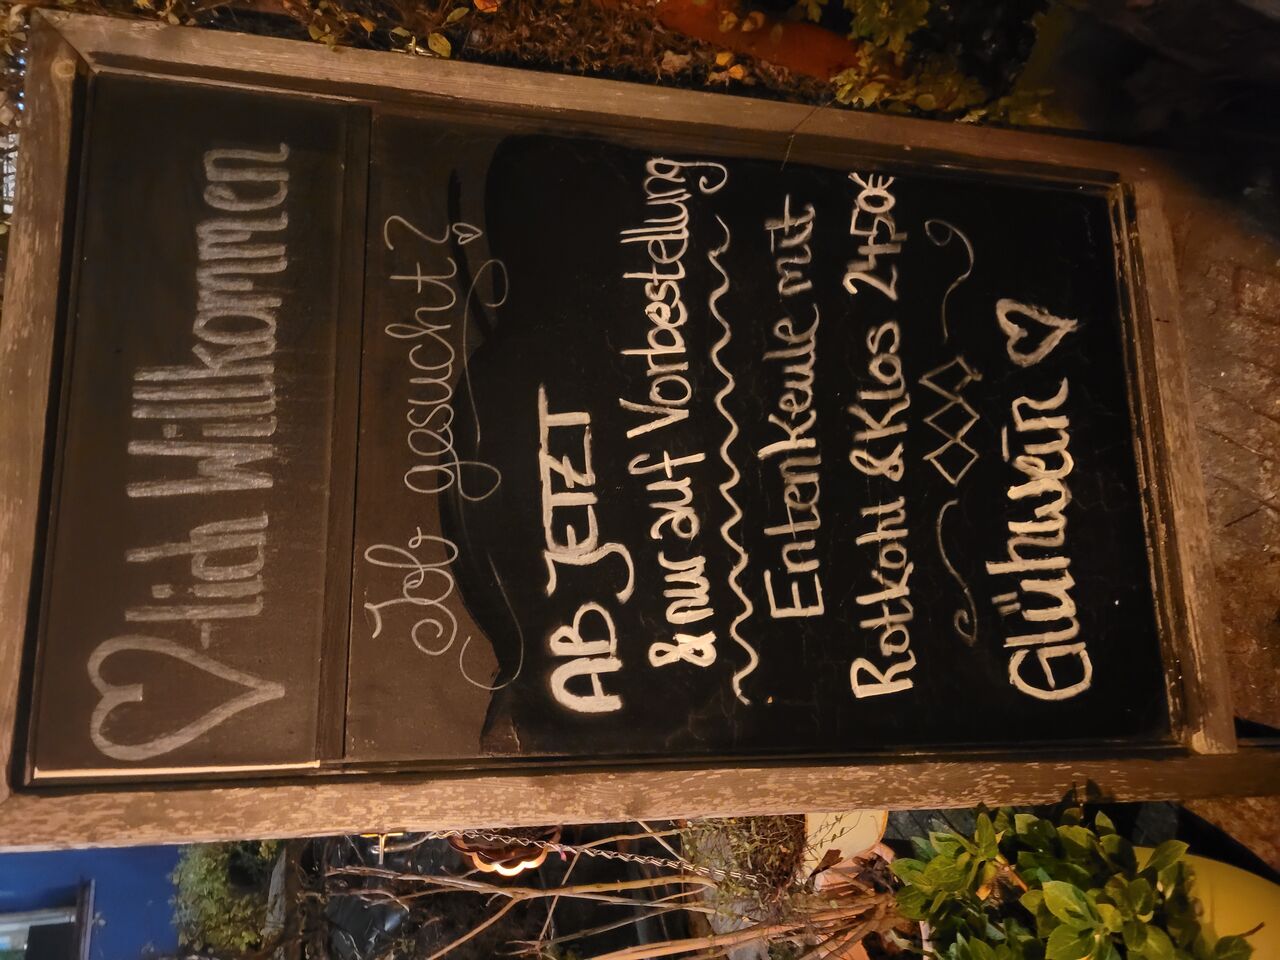 ♡-lich Willkommen
Job gesucht?
AB JETZT
& nur auf Vorbestellung
Entenkeule mit
Rotkohl & Klos 24,50€
Glühwein ♡